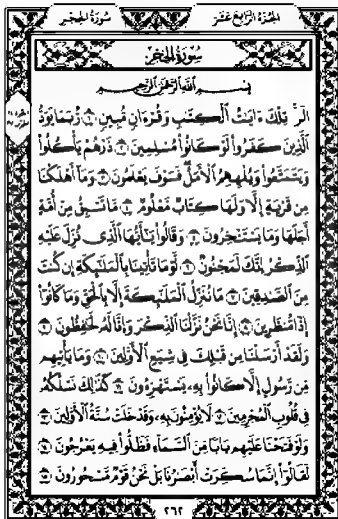 سُورَةُ الحِجْرِ
الجُزْءُ الرَّابِعَ عَشَرَ
سُورَةُ الحِجْرِ
بِسْمِ اللَّهِ الرَّحْمَٰنِ الرَّحِيمِ
الٓر ۚ تِلْكَ ءَايَٰتُ ٱلْكِتَٰبِ وَقُرْءَانٍ مُّبِينٍ ١ رُّبَمَا يَوَدُّ
ٱلَّذِينَ كَفَرُوا۟ لَوْ كَانُوا۟ مُسْلِمِينَ ٢ ذَرْهُمْ يَأْكُلُوا۟
وَيَتَمَتَّعُوا۟ وَيُلْهِهِمُ ٱلْأَمَلُ ۖ فَسَوْفَ يَعْلَمُونَ ٣ وَمَآ أَهْلَكْنَا
مِن قَرْيَةٍ إِلَّا وَلَهَا كِتَابٌ مَّعْلُومٌ ٤ مَّا تَسْبِقُ مِنْ أُمَّةٍ
أَجَلَهَا وَمَا يَسْتَـْٔخِرُونَ ٥ وَقَالُوا۟ يَٰٓأَيُّهَا ٱلَّذِى نُزِّلَ عَلَيْهِ
ٱلذِّكْرُ إِنَّكَ لَمَجْنُونٌ ٦ لَّوْ مَا تَأْتِينَا بِٱلْمَلَٰٓئِكَةِ إِن كُنتَ
مِنَ ٱلصَّٰدِقِينَ ٧ مَا نُنَزِّلُ ٱلْمَلَٰٓئِكَةَ إِلَّا بِٱلْحَقِّ وَمَا كَانُوٓا۟
إِذًا مُّنظَرِينَ ٨ إِنَّا نَحْنُ نَزَّلْنَا ٱلذِّكْرَ وَإِنَّا لَهُۥ لَحَٰفِظُونَ ٩
وَلَقَدْ أَرْسَلْنَا مِن قَبْلِكَ فِى شِيَعِ ٱلْأَوَّلِينَ ١٠ وَمَا يَأْتِيهِم
مِّن رَّسُولٍ إِلَّا كَانُوا۟ بِهِۦ يَسْتَهْزِءُونَ ١١ كَذَٰلِكَ نَسْلُكُهُۥ
فِى قُلُوبِ ٱلْمُجْرِمِينَ ١٢ لَا يُؤْمِنُونَ بِهِۦ ۖ وَقَدْ خَلَتْ سُنَّةُ ٱلْأَوَّلِينَ ١٣
وَلَوْ فَتَحْنَا عَلَيْهِم بَابًا مِّنَ ٱلسَّمَآءِ فَظَلُّوا۟ فِيهِ يَعْرُجُونَ ١٤
لَقَالُوٓا۟ إِنَّمَا سُكِّرَتْ أَبْصَٰرُنَا بَلْ نَحْنُ قَوْمٌ مَّسْحُورُونَ ١٥
٢٦٢